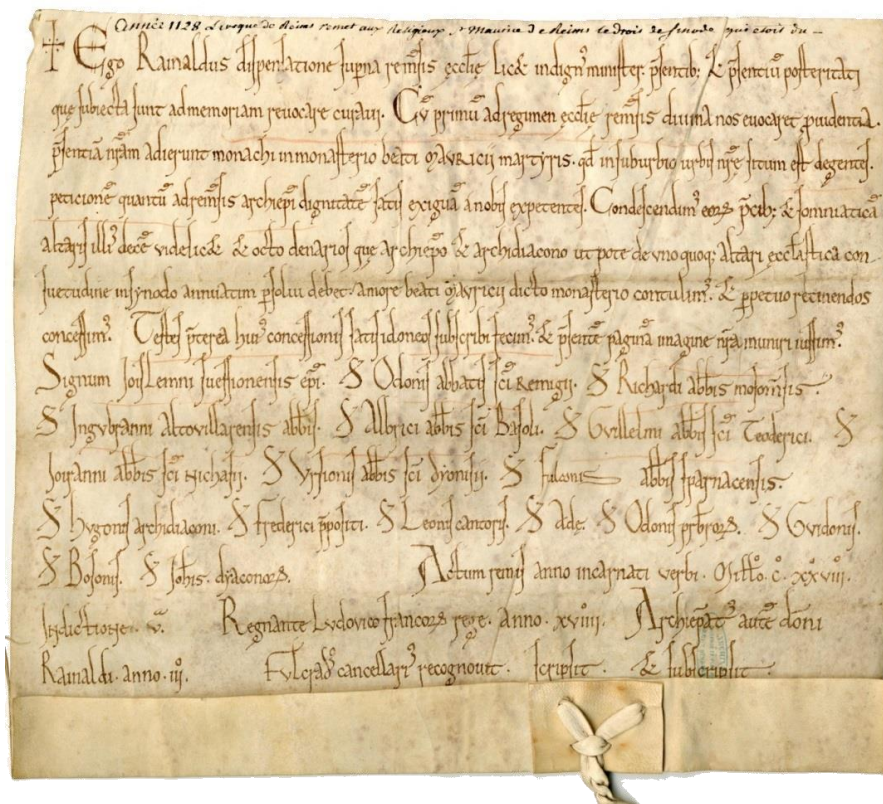 Année 1128 L'eveque de Reims remet aux Religieux. St Maurice de Reims le drois de sinode qui etois du —
Ego Rainaldus dispensatione sup̄na rem̄sis ecclīe licæ indign᷒ minister. p̄sentib; & p̄sentiū posteritati
que subiecta sunt ad memoriam revocare curavi. Cū primū ad regimen ecclīe rem̄sis divina nos evocaret ꝓvidentia.
p̄sentiā nrām adierunt monachi in monasterio beati MAVRICII martyris. qđ in suburbio urbis nrē situm est degentes.
peticionē quantū ad rem̄sis archiep̄i dignitatē satis exiguā a nobis expetentes. Condescendim᷒ eoꝝ p̄cib; &
altaris illi᷒ decē videlicæ & octo denarios que archiep̄o & archidiacono ut pote de unoquoq; altari eccl̄astica con-
suetudine in synodo annuatim ꝑsolui debet. amore beati MAVRICII dicto monasterio contulim᷒. & ꝑpetuo retinendos
concessim᷒. Testes p̄terea hui᷒ concessionis satis idoneos subscribi fecim᷒. & p̄sentē paginā imagine nrā muniri iussim᷒.
Signum Joislenni suessionensis ep̄i. S Odonis abbatis sc̄i Remigii. S Richardi abb̄is mosom̄sis.
S Ingvbranni altovillarensis abb̄is. S Albrici abb̄is sc̄i Basoli. S Gvillelmi abb̄is sc̄i Teoderici. S
Joiranni abb̄is sc̄i Nichasii. S Vrsionis abb̄is sc̄i dyonisii. S fulconis abb̄is sparnacensis
S hvgonis archidiaconi. S frederici p̄positi. S Leonis cantoris. S Adę. S Odonis p̄sbroꝝ. S Gvidonis.
S Bosonis. S Joh̄is. dyaconoꝝ. Actum remis anno incarnati verbi. Mill̄o. c̊. xx̊. viii̊.
Indictione. v̄. Regnante Ludovico francoꝝ rege. anno. xviiii. Archiep̄at᷒ autē dōni
Rainaldi. anno. iii̊. Fvlcrad᷒ cancellari᷒ recognovit. scripsit. & subscripsit.